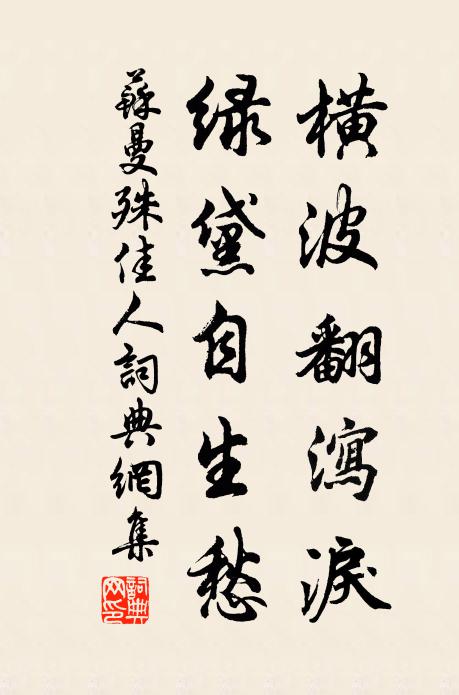 橫波翻瀉淚
綠黛自生愁
蘇曼殊佳人詞典網集
詞典網印